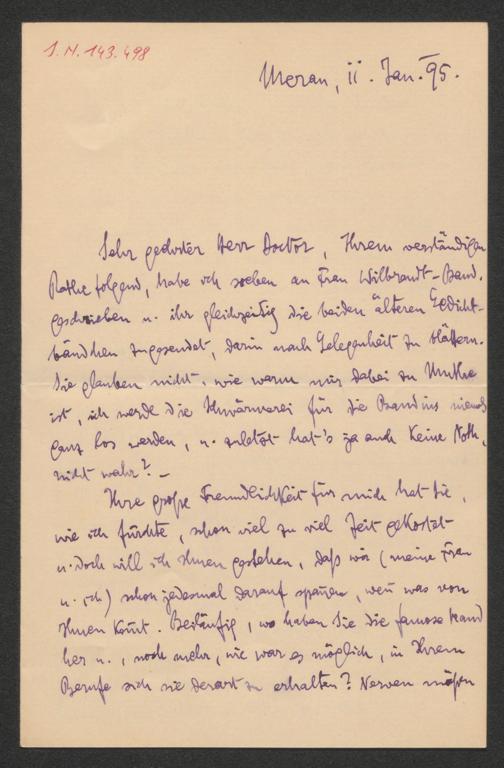 I.N. 143.498
Meran, 11. Jan. 95.
Sehr geehrter Herr Doctor, Ihrem verständigen
Rathe folgend, habe ich soeben an Frau Wilbrandt-Baud.
geschrieben u. ihr gleichzeitig die beiden älteren Gedicht-
bändchen zugesendet, darin nach Gelegenheit zu blättern.
Sie glauben nicht, wie warm mir dabei zu Muthe
ist, ich werde die Schwärmerei für die Baudius niemals
ganz los werden, u. zuletzt hat's ja auch keine Noth,
nicht wahr? –
Ihre große Freundlichkeit für mich hat Sie,
wie ich fürchte, schon viel zu viel Zeit gekostet
u. doch will ich Ihnen gestehen, daß wir (meine Frau
u. ich) schon jedesmal darauf spannen, wen̄ was von
Ihnen kom̄t. Beiläufig, wo haben Sie die famose Hand
her u., noch mehr, wie war es möglich, in Ihrem
Berufe sich sie derart zu erhalten? Nerven müßen